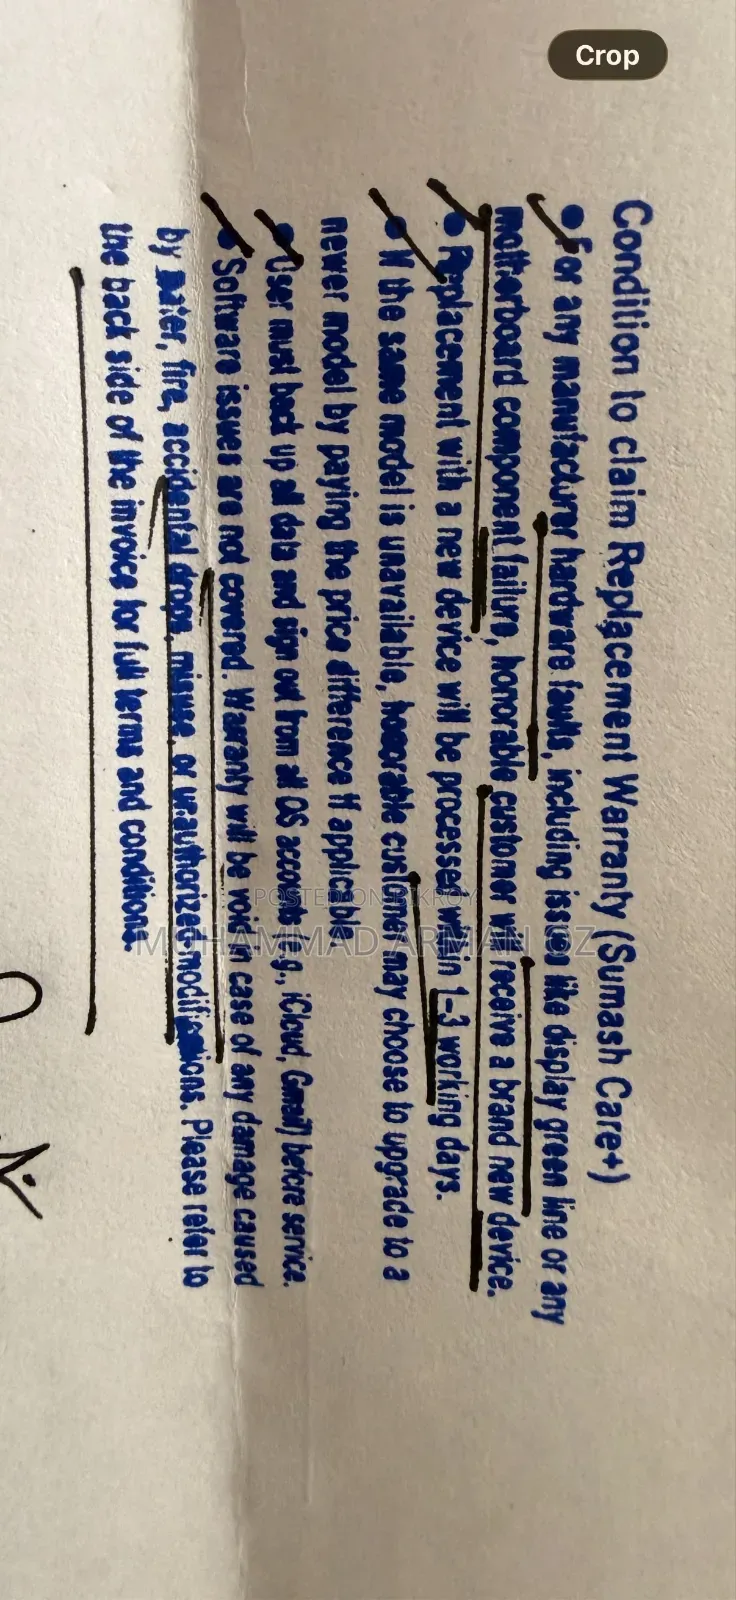 Crop
Condition to claim Replacement Warranty (Sumash Care+)
● For any manufacturer hardware faults, including issues like display green line or any
motherboard component failure, honorable customer will receive a brand new device.
● Replacement with a new device will be processed within 1-3 working days.
● If the same model is unavailable, honorable customer may choose to upgrade to a
newer model by paying the price difference if applicable.
● User must back up all data and sign out from all OS accounts (e.g., iCloud, Gmail) before service.
● Software issues are not covered. Warranty will be void in case of any damage caused
by water, fire, accidental drops, misuse or unauthorized modifications. Please refer to
the back side of the invoice for full terms and conditions.
POSTED ON BIKROY
MUHAMMAD ARMAN OZ